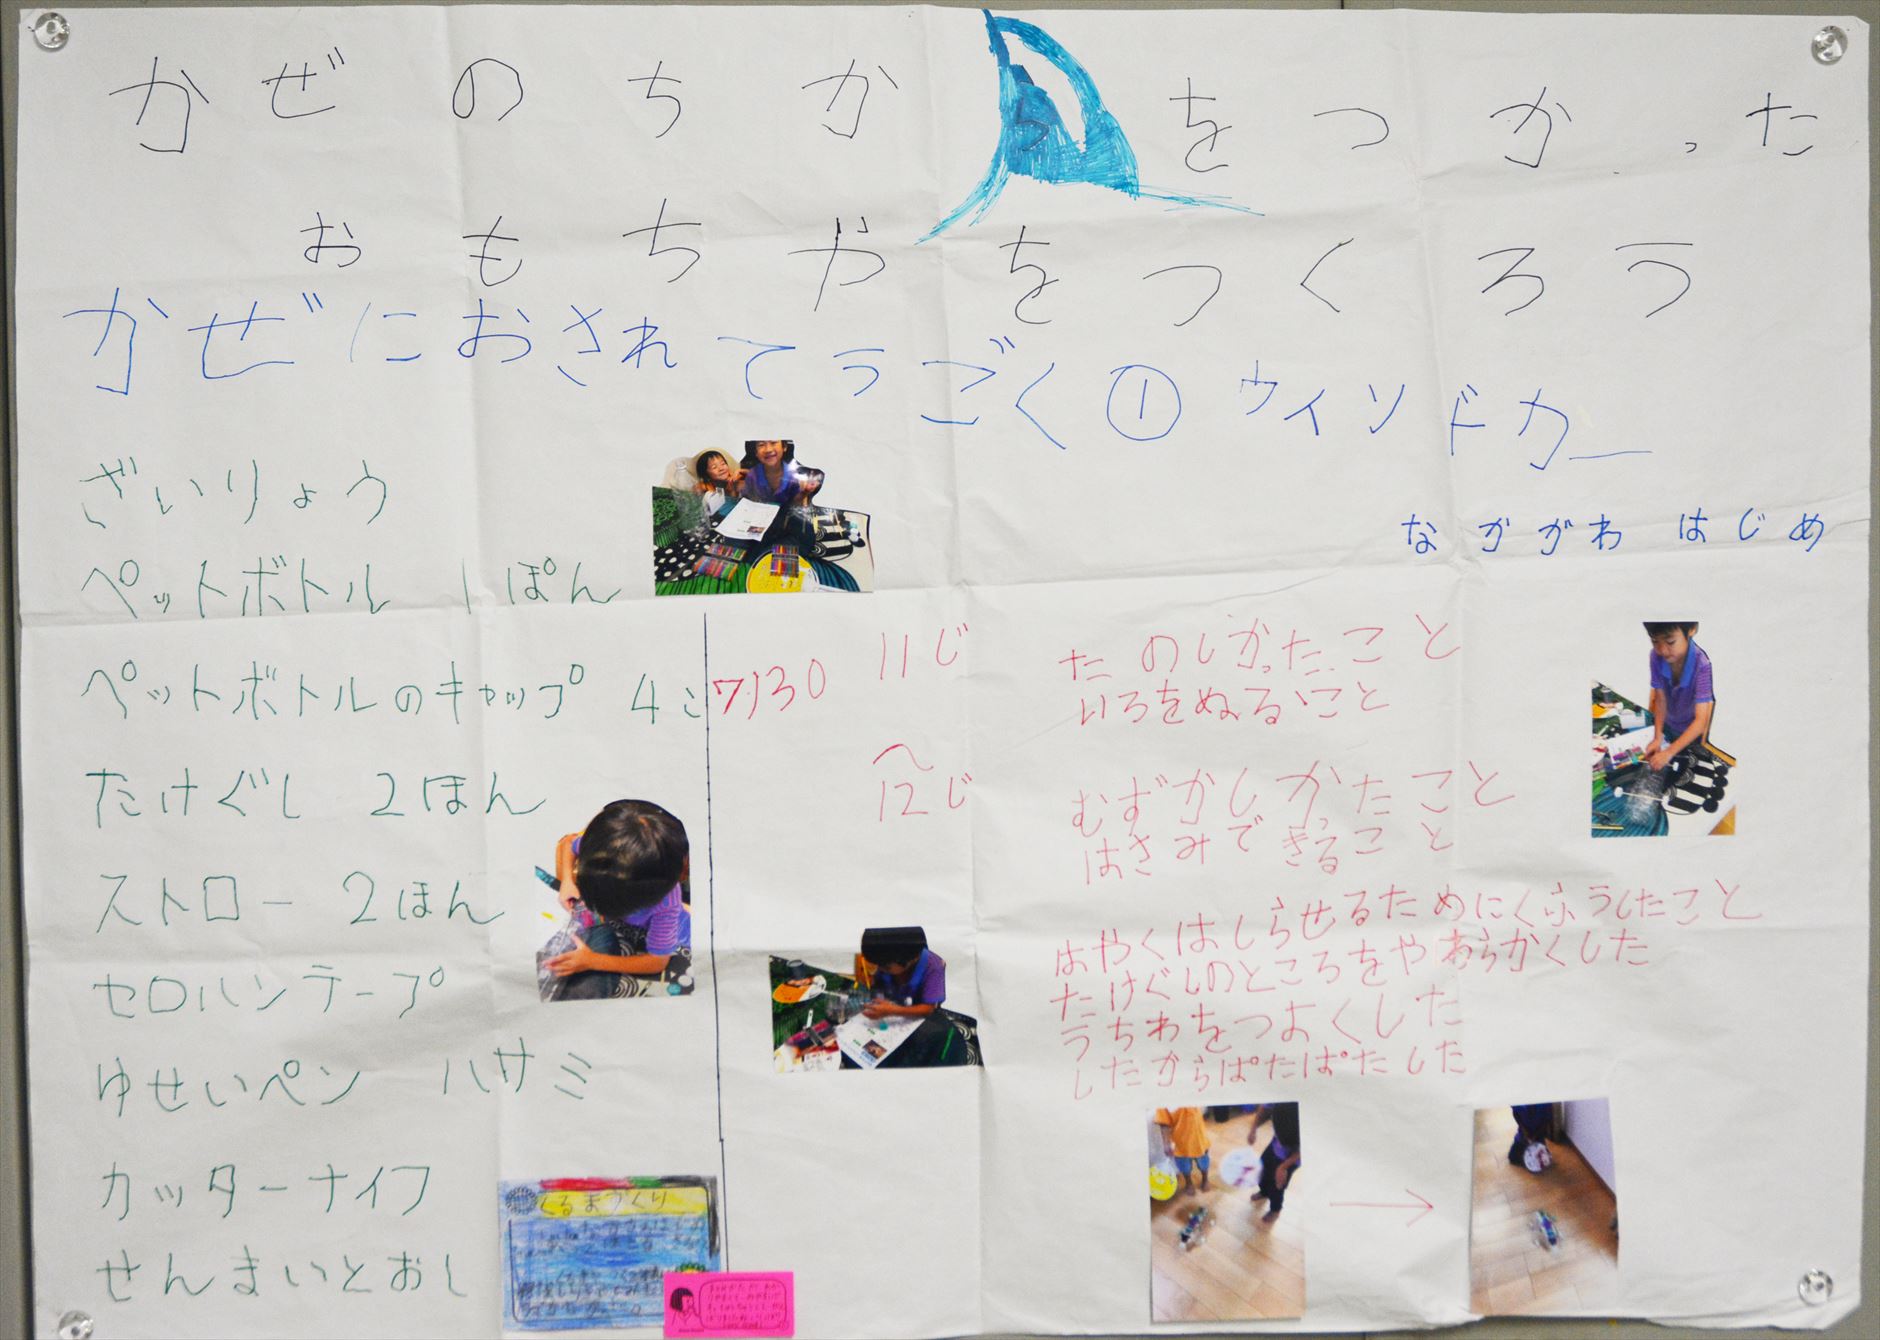 かぜのちからをつかった
おもちやをつくろう
かぜにおされてうごく① ウインドカー
なかがわ はじめ
ざいりょう
ペットボトル 1ぽん
ペットボトルのキャップ 4こ
たけぐし 2ほん
ストロー 2ほん
セロハンテープ
ゆせいペン ハサミ
カッターナイフ
せんまいとおし
くるまづくり
7/30
11じ
〜
12じ
たのしかったこと
いろをぬること
むずかしかったこと
はさみできること
はやくはしらせるためにくふうしたこと
たけぐしのところをやわらかくした
うちわをつよくした
したからぱたぱたした